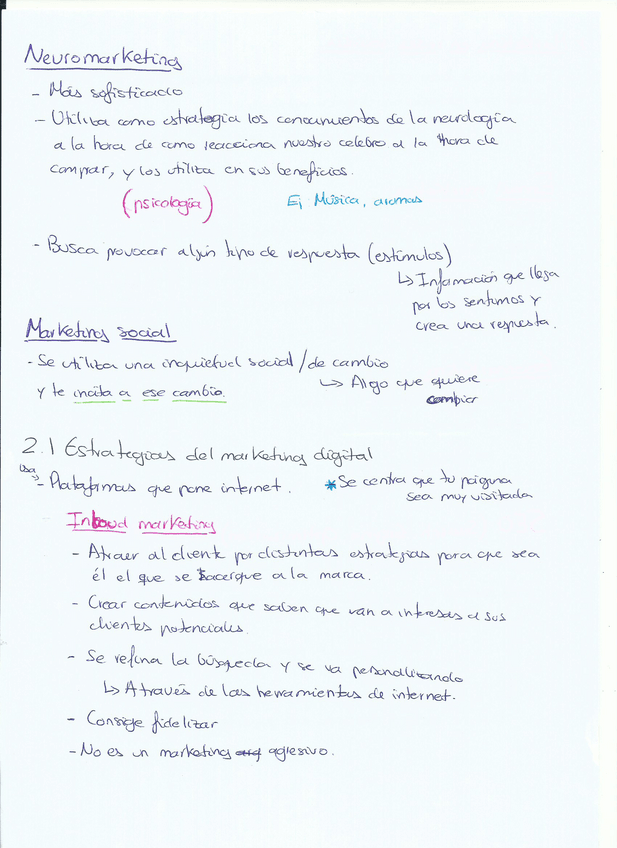 Neuromarketing
- Más sofisticado
- Utiliza como estrategia los conocimientos de la neurología
a la hora de como reacciona nuestro celebro a la hora de
comprar, y los utiliza en sus beneficios.
(psicología) Ej Música, aromas
- Busca provocar algún tipo de respuesta (estímulos)
↳ Información que llega
por los sentimos y
crea una respuesta.
Marketing social
- Se utiliza una inquietud social / de cambio
↳ Algo que quiere
cambiar
y te incita a ese cambio.
2.1 Estrategias del marketing digital
usa
- Plataformas que pone internet. *Se centra que tu página
sea muy visitada
Inboud marketing
- Atraer al cliente por distintas estrategias para que sea
él el que se acerque a la marca.
- Crear contenidos que saben que van a interesas a sus
clientes potenciales.
- Se refina la búsqueda y se va personalizando
↳ Através de las herramientas de internet.
- Consige fidelizar
- No es un marketing agresivo.